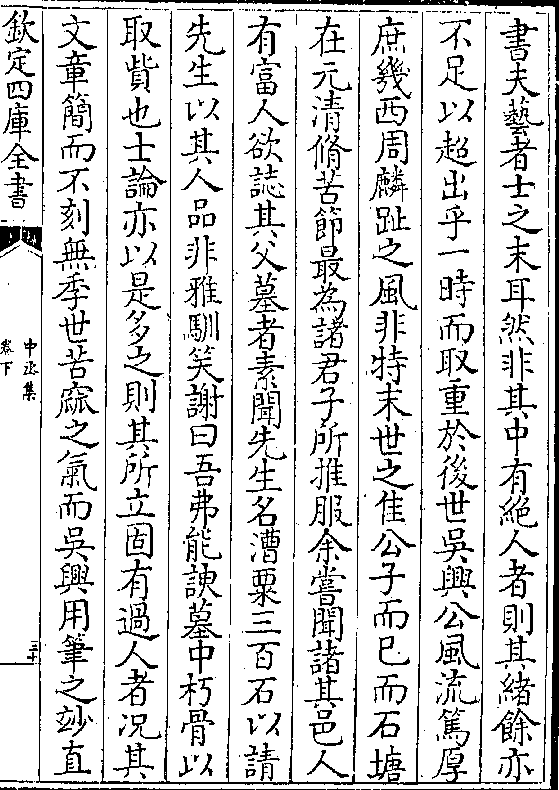 書夫藝者士之末耳然非其中有絶人者則其緒餘亦
不足以超出乎一時而取重於後世吳興公風流篤厚
庶幾西周麟趾之風非特末世之佳公子而已而石塘
在元清脩苦節最為諸君子所推服余嘗聞諸其邑人
有富人欲誌其父墓者素聞先生名漕粟三百石以請
先生以其人品非雅馴笑謝曰吾弗能諛墓中朽骨以
取貲也士論亦以是多之則其所立固有過人者况其
文章簡而不刻無季世苦窳之氣而吳興用筆之玅直
欽定四庫全書
中丞集
卷下
三十